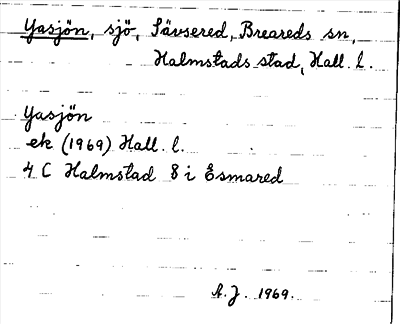 Yasjön, sjö, Sävsered, Breareds sn,
Halmstads stad, Hall. l.
Yasjön
ek (1969) Hall. l.
4 C Halmstad 8 i Esmared
A.J. 1969.